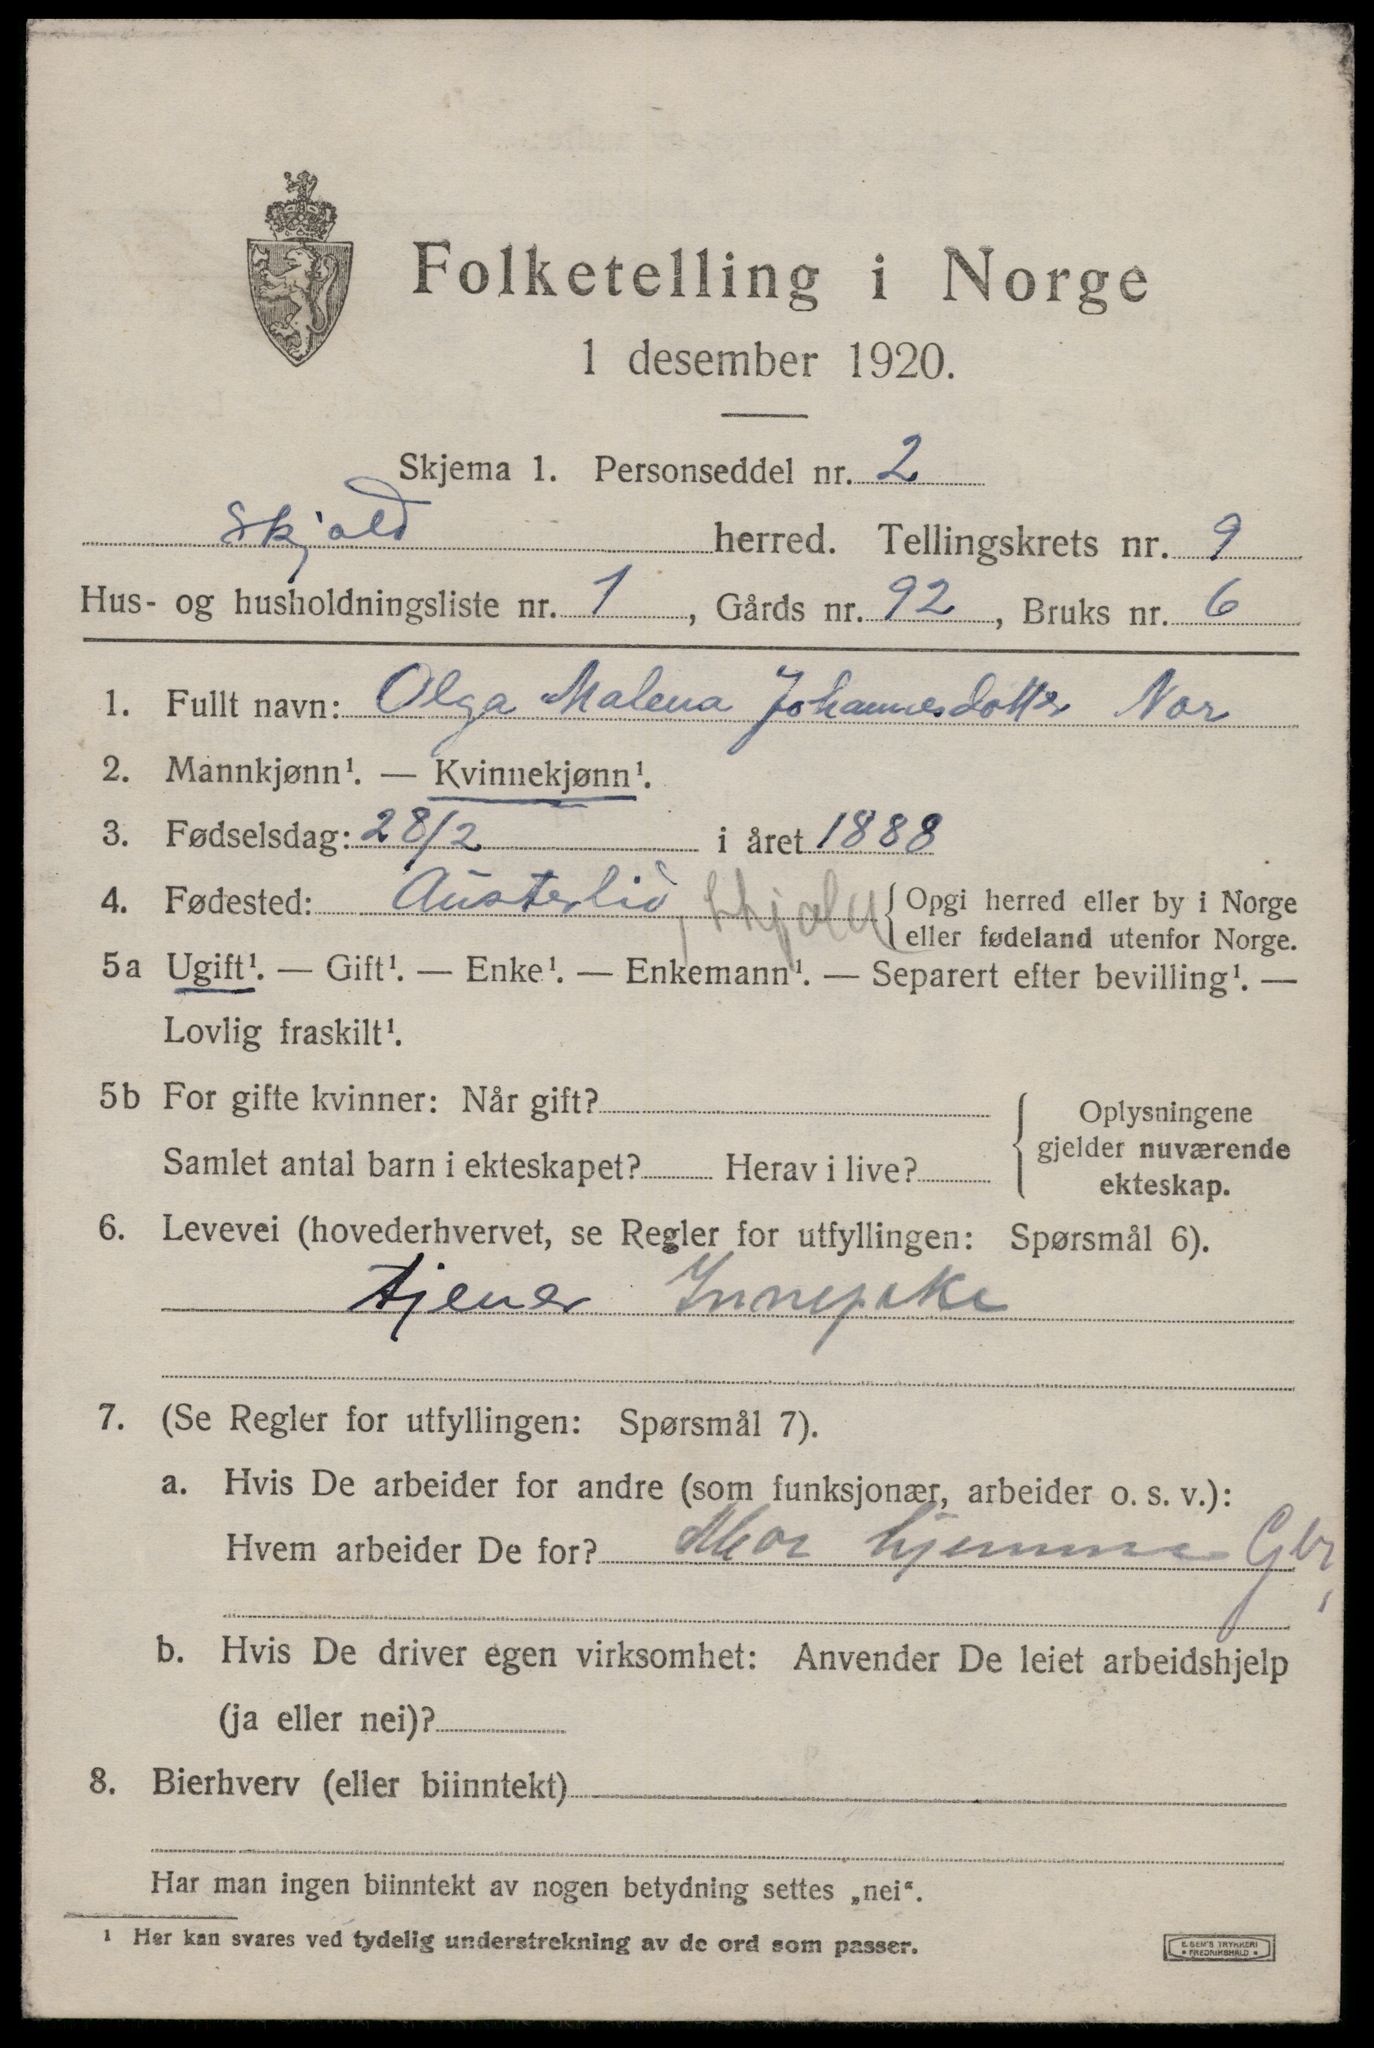 Folketelling i Norge
1 desember 1920.
Skjema 1. Personseddel nr. 2
Skjold herred. Tellingskrets nr. 9
Hus- og husholdningsliste nr. 1, Gårds nr. 92, Bruks nr. 6
1. Fullt navn: Olga Malena Johannesdotter Nor
2. Mannkjønn¹. — Kvinnekjønn¹.
3. Fødselsdag: 28/2 i året 1888
4. Fødested: Austerlid, Skjold { Opgi herred eller by i Norge
eller fødeland utenfor Norge.
5a Ugift¹. — Gift¹. — Enke¹. — Enkemann¹. — Separert efter bevilling¹. —
Lovlig fraskilt¹.
5b For gifte kvinner: Når gift?
Samlet antal barn i ekteskapet? Herav i live?
Oplysningene
gjelder nuværende
ekteskap.
6. Levevei (hovederhvervet, se Regler for utfyllingen: Spørsmål 6).
tjener
7. (Se Regler for utfyllingen: Spørsmål 7).
a. Hvis De arbeider for andre (som funksjonær, arbeider o. s. v.):
Hvem arbeider De for? Mor hjemme Gbr,
b. Hvis De driver egen virksomhet: Anvender De leiet arbeidshjelp
(ja eller nei)?
8. Bierhverv (eller biinntekt)
Har man ingen biinntekt av nogen betydning settes „nei“.
¹ Her kan svares ved tydelig understrekning av de ord som passer.
E. SEM'S TRYKKERI
• FREDRIKSHALD •